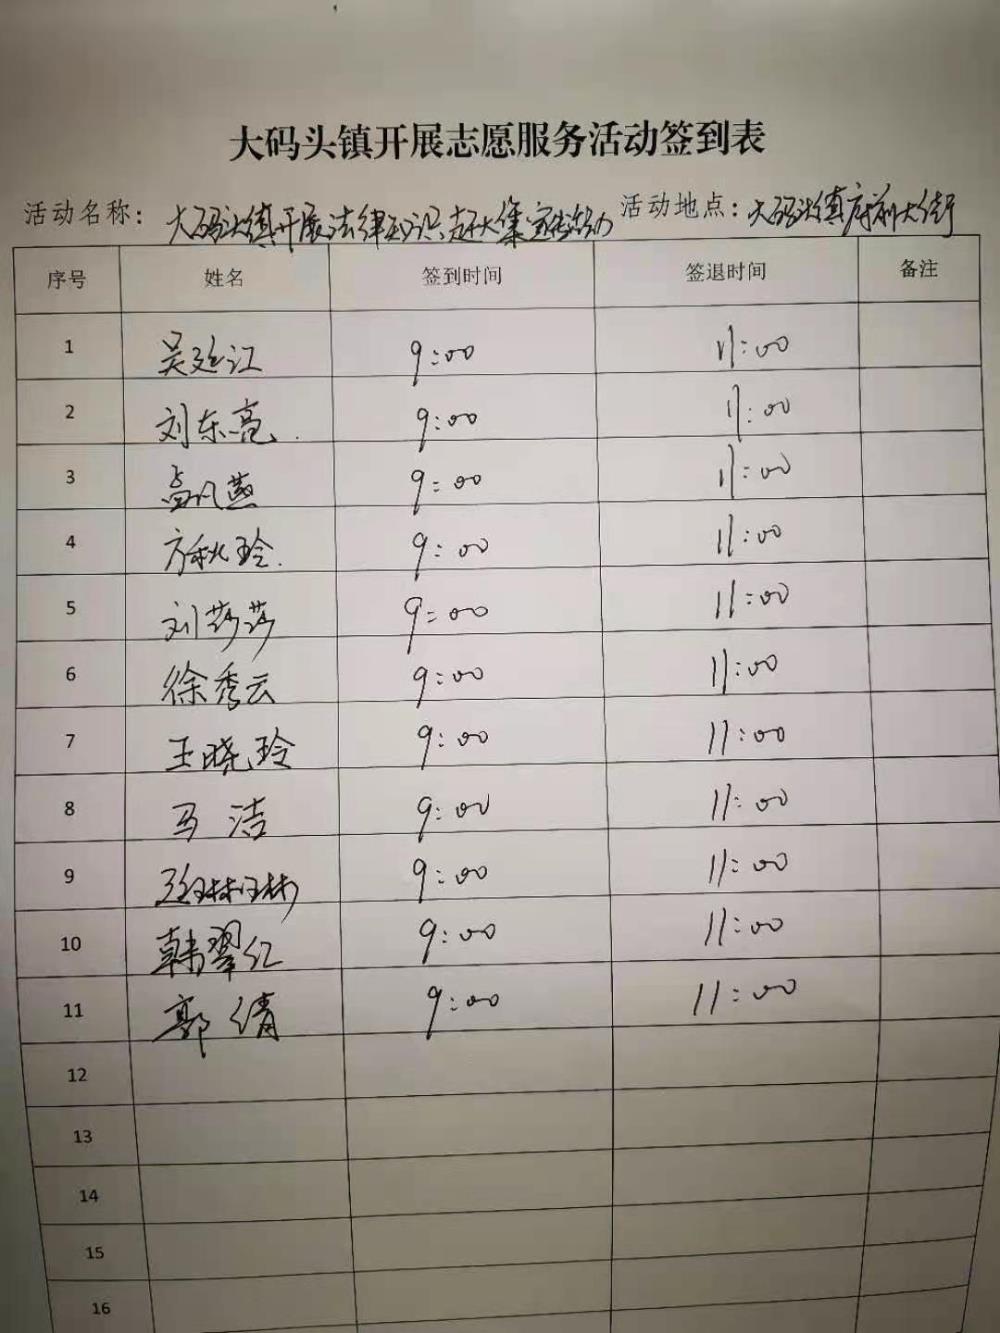 大码头镇开展志愿服务活动签到表
活动名称：大码头镇开展法律知识赶大集宣传活动 活动地点：大码头镇府前大街
序号 姓名 签到时间 签退时间 备注
1 吴延江 9:00 11:00
2 刘东亮 9:00 11:00
3 9:00 11:00
4 方秋玲 9:00 11:00
5 刘莎莎 9:00 11:00
6 徐秀云 9:00 11:00
7 王晓玲 9:00 11:00
8 马洁 9:00 11:00
9 9:00 11:00
10 韩翠红 9:00 11:00
11 郭倩 9:00 11:00
12
13
14
15
16